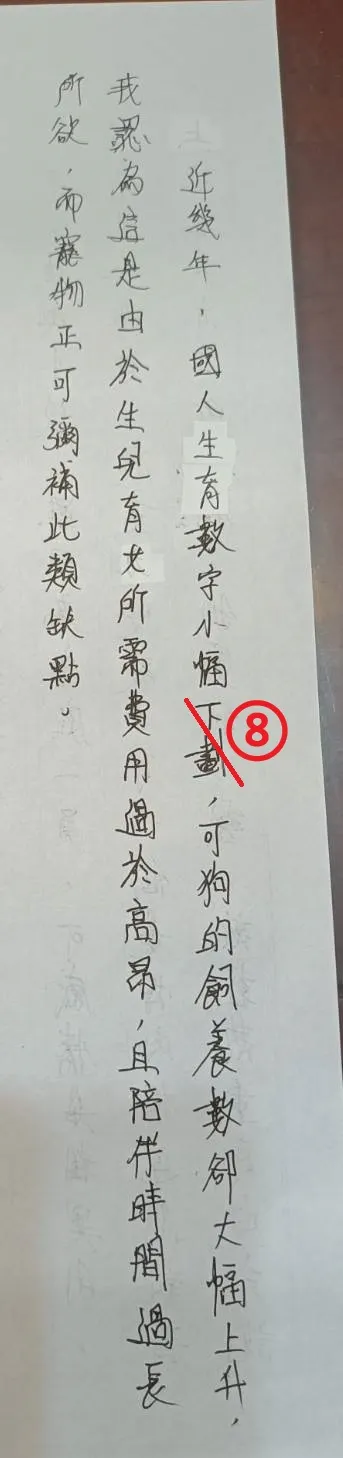 近幾年，國人生育數字小幅下劃，可狗的飼養數卻大幅上升，
我認為這是由於生兒育女所需費用過於高昂，且陪伴時間過長
所欲，而寵物正可彌補此類缺點。
⑧